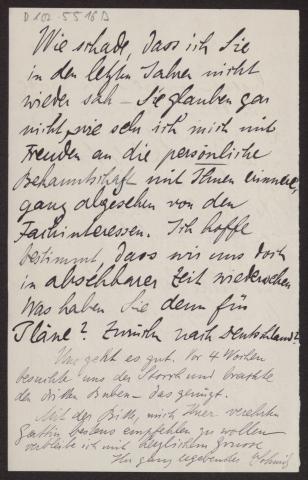 D 102-5516 D
Wie schade, dass ich Sie
in den letzten Jahren nicht
wieder sah – Sie glauben gar
nicht, wie sehr ich mich mit
Freuden an die persönliche
Bekanntschaft mit Ihnen erinnere,
ganz abgesehen von den
Fachinteressen. Ich hoffe
bestimmt, dass wir uns doch
in absehbarer Zeit wiedersehen
Was haben Sie denn für
Pläne? Zurück nach Deutschland?
Uns geht es gut. Vor 4 Wochen
besuchte uns der Storch und brachte
den dritten Buben – das genügt.
Mit der Bitte, mich Ihrer verehrten
Gattin bestens empfehlen zu wollen
verbleibe ich mit herzlichem Grusse
Ihr ganz ergebenster